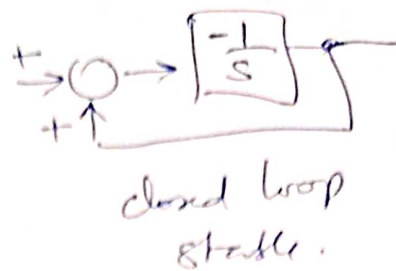 +
-1
s
+
closed loop
stable.